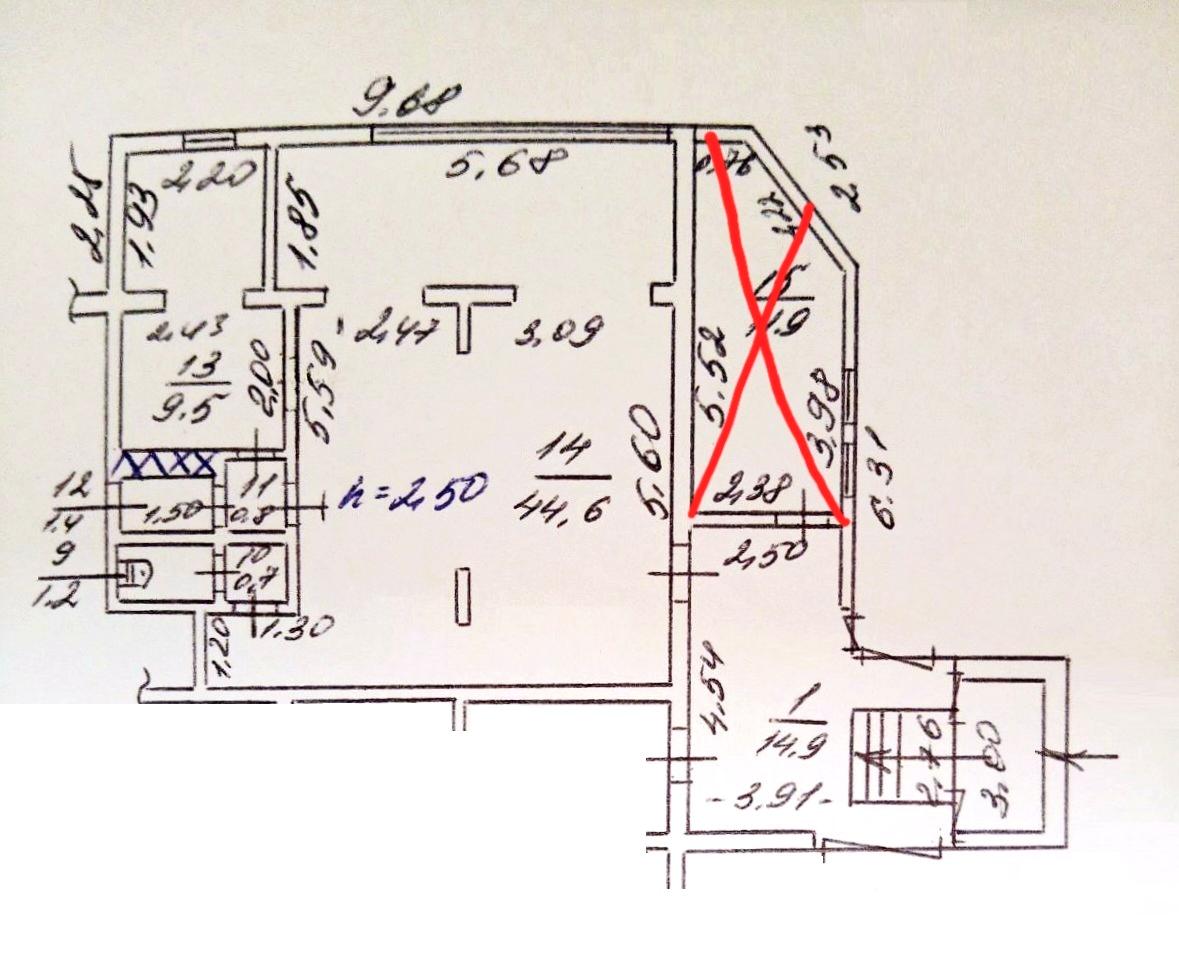 9.68
2,53
2,20
5,68
0,76
2,25
1,93
1.85
15
11.9
2,43
2,47
3,09
13
9.5
2,00
5,59
5.52
3,98
14
44,6
5,60
6.31
12
1.4
1,50
11
0.8
h=2,50
2,38
2,50
9
1.2
10
0,7
1,20
1.30
4,54
1
14.9
-3.91-
2,76
3.00